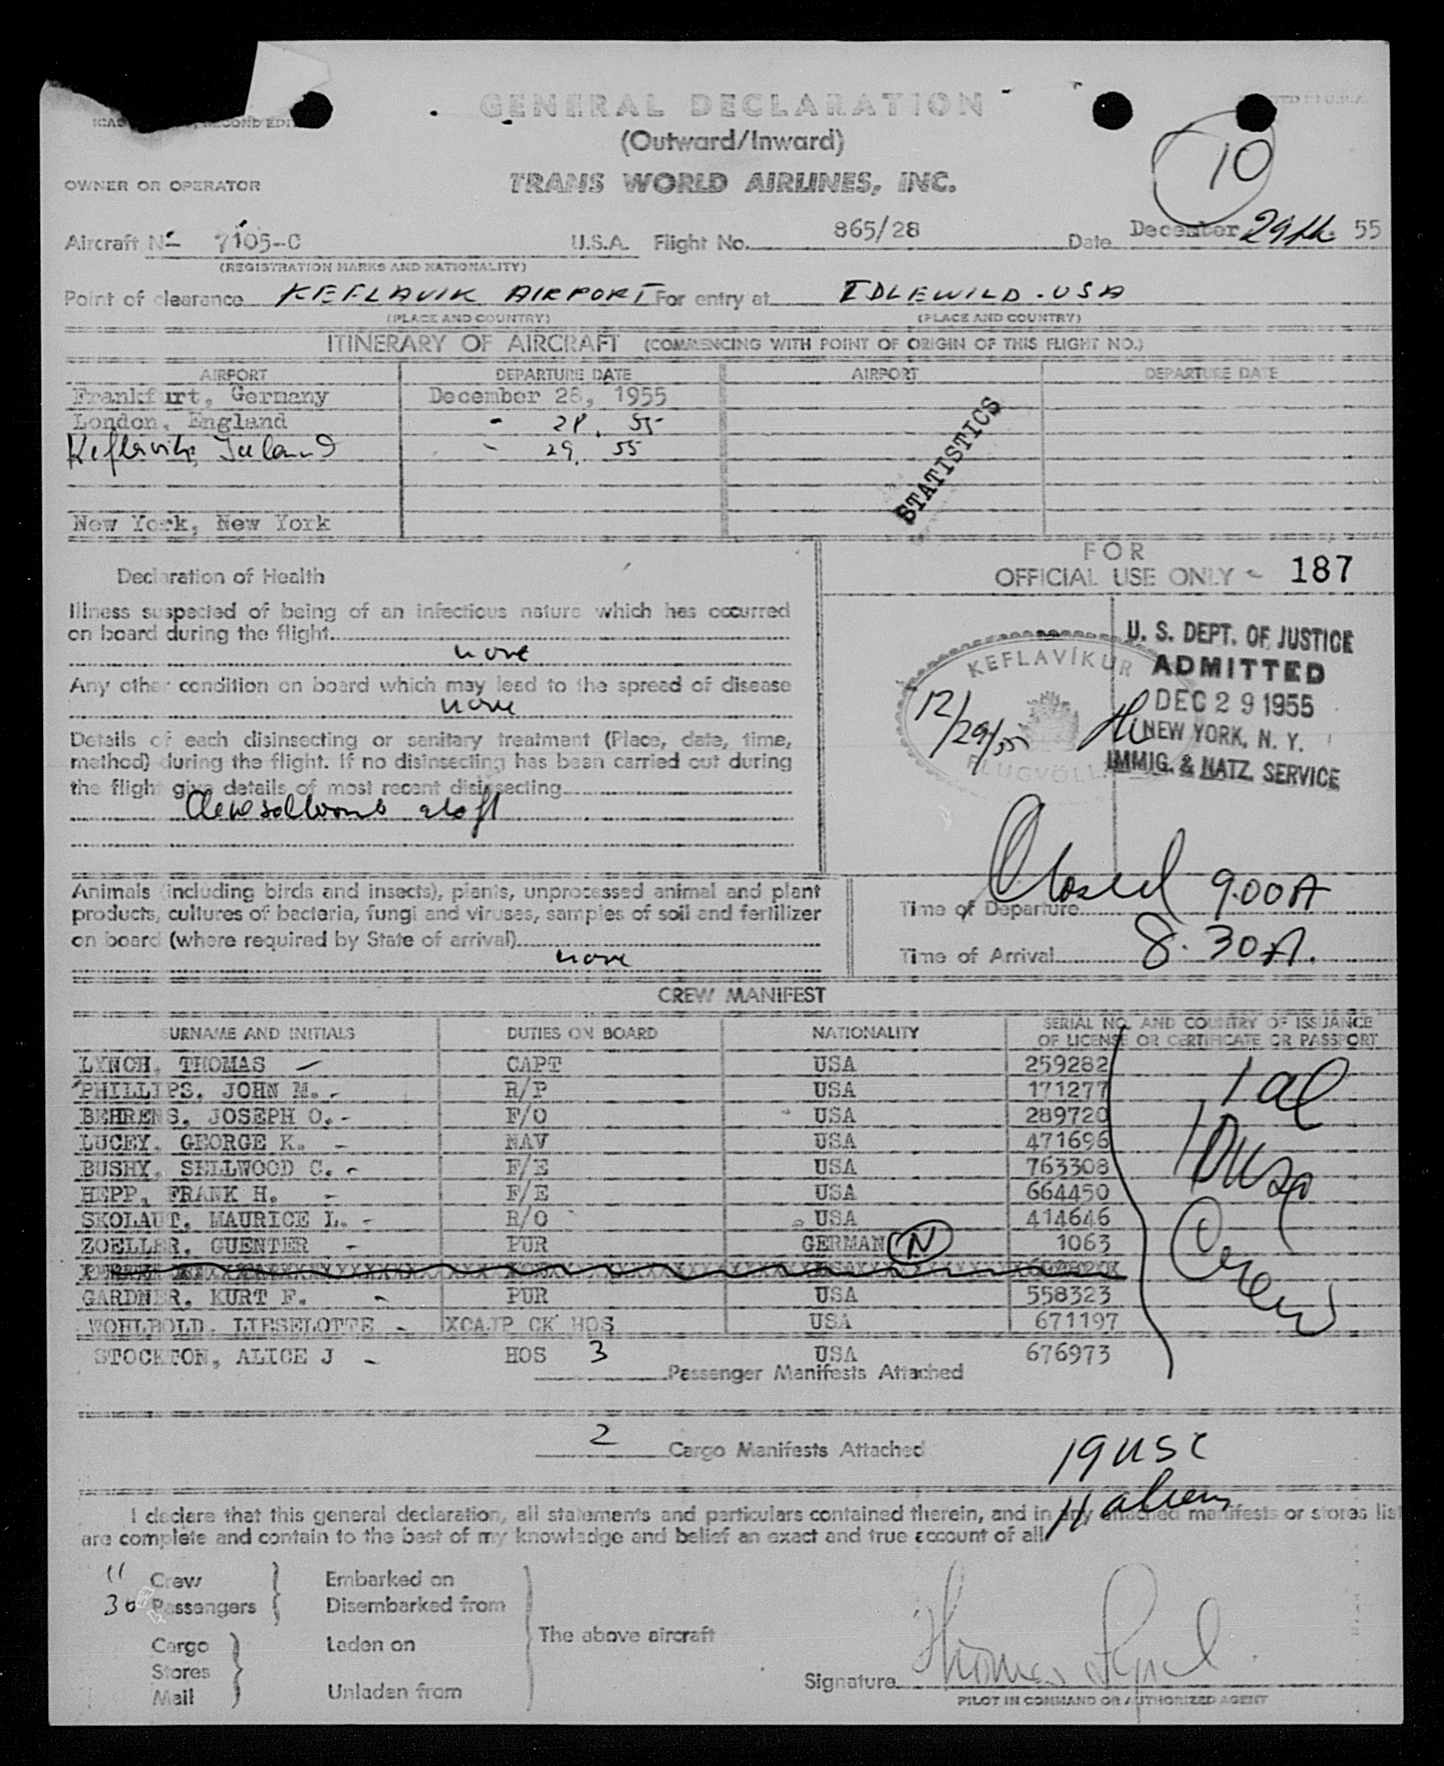 GENERAL DECLARATION
(Outward/Inward)
10
OWNER OR OPERATOR
TRANS WORLD AIRLINES, INC.
Aircraft No 7105-C U.S.A. Flight No. 865/28 Date December 29th 55
(REGISTRATION MARKS AND NATIONALITY)
Point of clearance KEFLAVIK AIRPORT For entry at IDLEWILD - USA
(PLACE AND COUNTRY) (PLACE AND COUNTRY)
ITINERARY OF AIRCRAFT (COMMENCING WITH POINT OF ORIGIN OF THIS FLIGHT NO.)
AIRPORT DEPARTURE DATE AIRPORT DEPARTURE DATE
Frankfurt, Germany December 28, 1955
London, England - 28. 55-
Keflavik, Iceland - 29. 55
STATISTICS
New York, New York
FOR
OFFICIAL USE ONLY - 187
Declaration of Health
Illness suspected of being of an infectious nature which has occurred
on board during the flight
none
Any other condition on board which may lead to the spread of disease
none
Details of each disinsecting or sanitary treatment (Place, date, time,
method) during the flight. If no disinsecting has been carried out during
the flight give details of most recent disinsecting
aloft
KEFLAVÍKUR
12/29/55
U. S. DEPT. OF JUSTICE
ADMITTED
DEC 29 1955
NEW YORK, N. Y.
IMMIG. & NATZ. SERVICE
Animals (including birds and insects), plants, unprocessed animal and plant
products, cultures of bacteria, fungi and viruses, samples of soil and fertilizer
on board (where required by State of arrival)
none
Closed 9.00A
Time of Departure
Time of Arrival 8.30A.
CREW MANIFEST
SURNAME AND INITIALS DUTIES ON BOARD NATIONALITY SERIAL NO. AND COUNTRY OF ISSUANCE
OF LICENSE OR CERTIFICATE OR PASSPORT
LYNCH, THOMAS - CAPT USA 259282
PHILLIPS, JOHN M. - R/P USA 171277
BEHRENS, JOSEPH O. - F/O USA 289720
LUCEY, GEORGE K. - NAV USA 471696
BUSHY, SELLWOOD C. - F/E USA 763308
HEPP, FRANK H. - F/E USA 664450
SKOLAUT, MAURICE L. - R/O USA 414646
ZOELLER, GUENTER - PUR GERMAN N 1063
GARDNER, KURT F. - PUR USA 558323
WOHLBOLD, LIESELOTTE - HOS USA 671197
STOCKTON, ALICE J - HOS USA 676973
1 al
10 usc
Crew
3 Passenger Manifests Attached
2 Cargo Manifests Attached
19 USC
11 aliens
I declare that this general declaration, all statements and particulars contained therein, and in any attached manifests or stores list
are complete and contain to the best of my knowledge and belief an exact and true account of all
11 Crew Embarked on
30 Passengers Disembarked from
The above aircraft
Cargo Laden on
Stores
Mail Unladen from
Signature Thomas Lynch
PILOT IN COMMAND OR AUTHORIZED AGENT